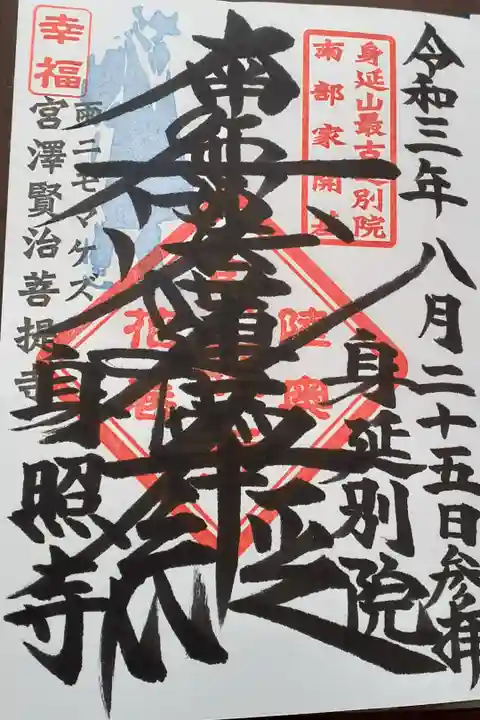 令和三年八月二十五日参拝
身延山最古別院
南部家開基
身延別院
南無妙法蓮華経
陸奥
花巻
幸福
雨ニモマケズ
宮澤賢治菩提寺
身照寺